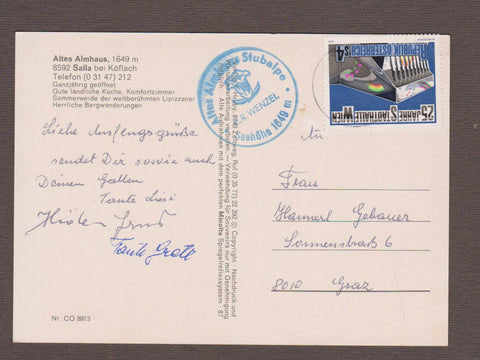 Altes Almhaus, 1649 m
8592 Salla bei Köflach
Telefon (0 31 47) 212
Ganzjährig geöffnet
Gute ländliche Küche, Komfortzimmer
Sommerweide der weltberühmten Lipizzaner
Herrliche Bergwanderungen
Liebe
sendet Dir sowie auch
Deinen
Tante Liesi
Tante Grete
Nr. CO 8913
Altes Almhaus Stubalpe
R. WENZEL
Seehöhe 1649 m
Ruf (0 35 77) 22 292 © Copyright · Nachdruck und
verboten. — Verwendung für Souvenirs nur mit Genehmigung
Alle Aufnahmen mit dem perfekten Minolta Spiegelreflexsystem · 87
REPUBLIK ÖSTERREICH
S 4
25 JAHRE STADTHALLE WIEN
An
Frau
Hannerl Gebauer
Sonnenstraß 6
8010 Graz